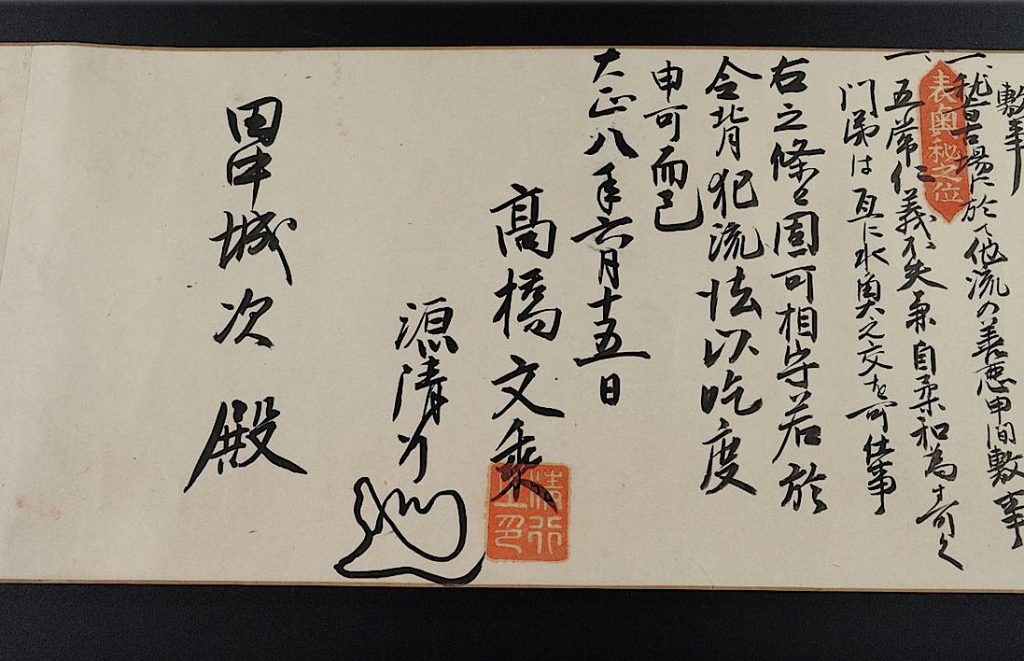 敷事
一、稽古場に於て他流の善悪申間敷事
表奥秘之位
一、五常仁義不失兼自柔和為専可之
門弟は互に水魚之交を可仕事
右之條々固可相守若於
令背犯流法以吃度
申可而已
大正八年六月十五日
高橋文乘
源清行
清行
田中城次殿